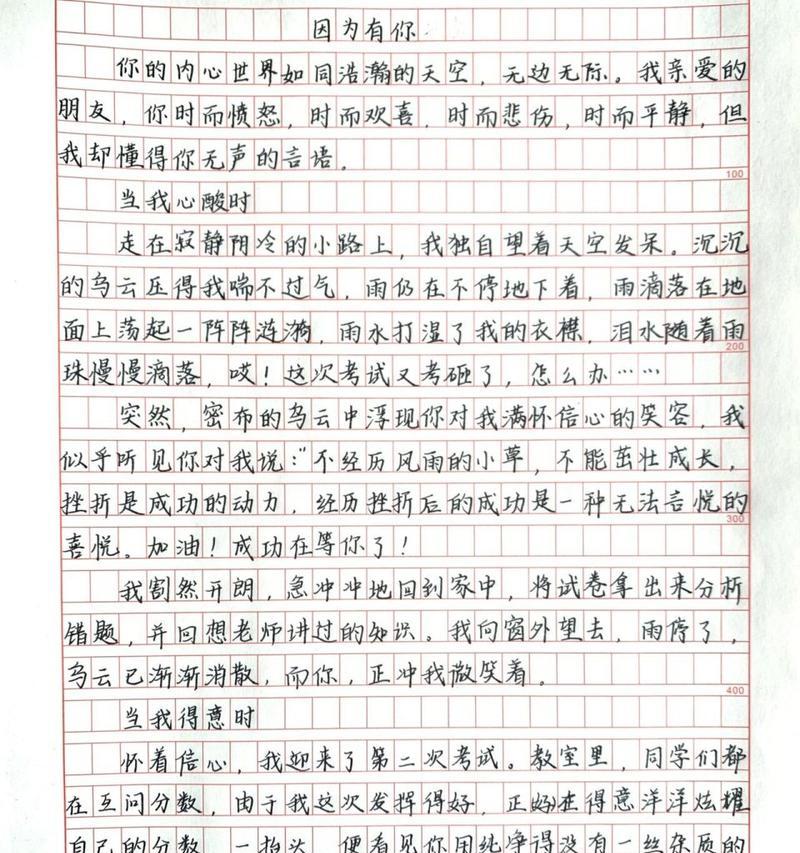 因为有你
你的内心世界如同浩瀚的天空，无边无际。我亲爱的
朋友，你时而愤怒，时而欢喜，时而悲伤，时而平静，但
我却懂得你无声的言语。
100
当我心酸时
走在寂静阴冷的小路上，我独自望着天空发呆。沉沉
的乌云压得我喘不过气，雨仍在不停地下着，雨滴落在地
面上荡起一阵阵涟漪，雨水打湿了我的衣襟，泪水随着雨
200
珠慢慢滴落，哎！这次考试又考砸了，怎么办……
突然，密布的乌云中浮现你对我满怀信心的笑容，我
似乎听见你对我说：“不经历风雨的小草，不能茁壮成长，
挫折是成功的动力，经历挫折后的成功是一种无法言悦的
300
喜悦。加油！成功在等你了！
我割然开朗，急冲冲地回到家中，将试卷拿出来分析
错题，并回想老师讲过的知识。我向窗外望去，雨停了，
乌云已渐渐消散，而你，正冲我微笑着。
400
当我得意时
怀着信心，我迎来了第二次考试。教室里，同学们都
在互问分数，由于我这次发挥得好，正好在得意洋洋炫耀
自己的分数，一抬头，便看见你因纯净得没有一丝杂质的